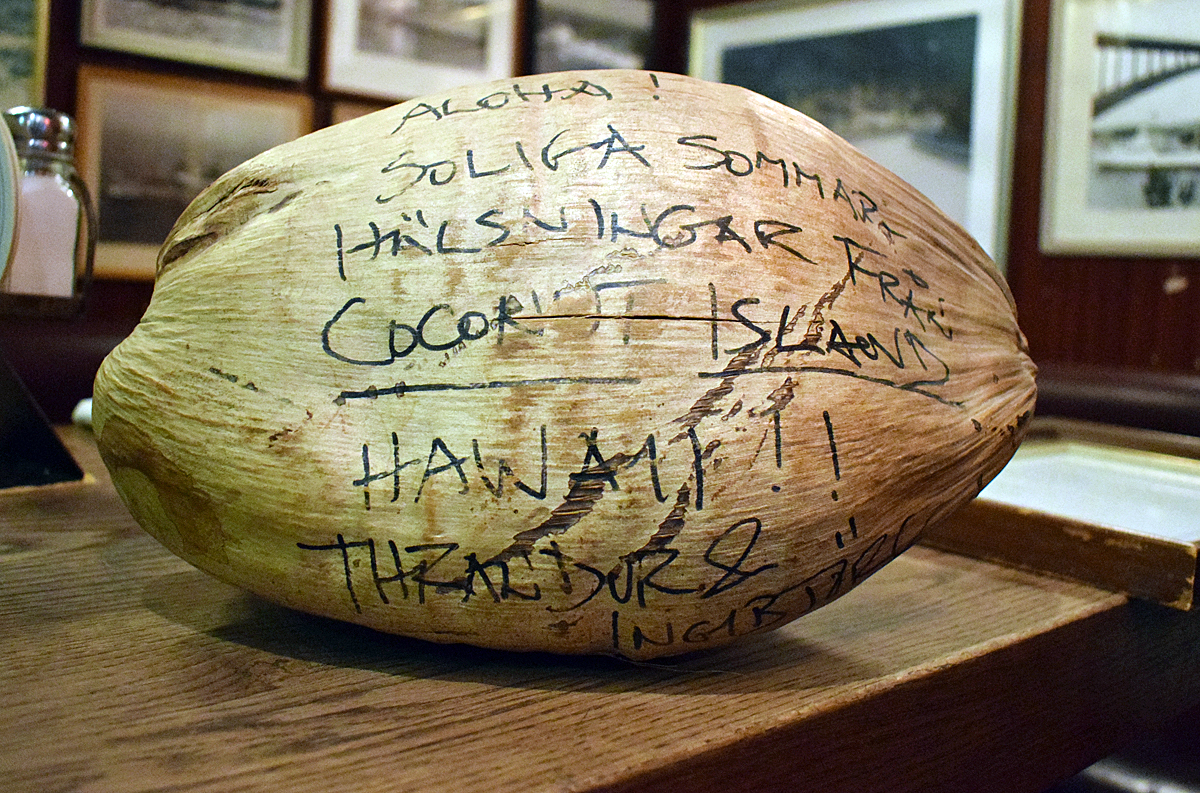 ALOHA!
SOLIGA SOMMAR
HÄLSNINGAR FRÅN
COCONUT ISLAND
HAWAII!!
THRANDUR &
INGIBJÖRG